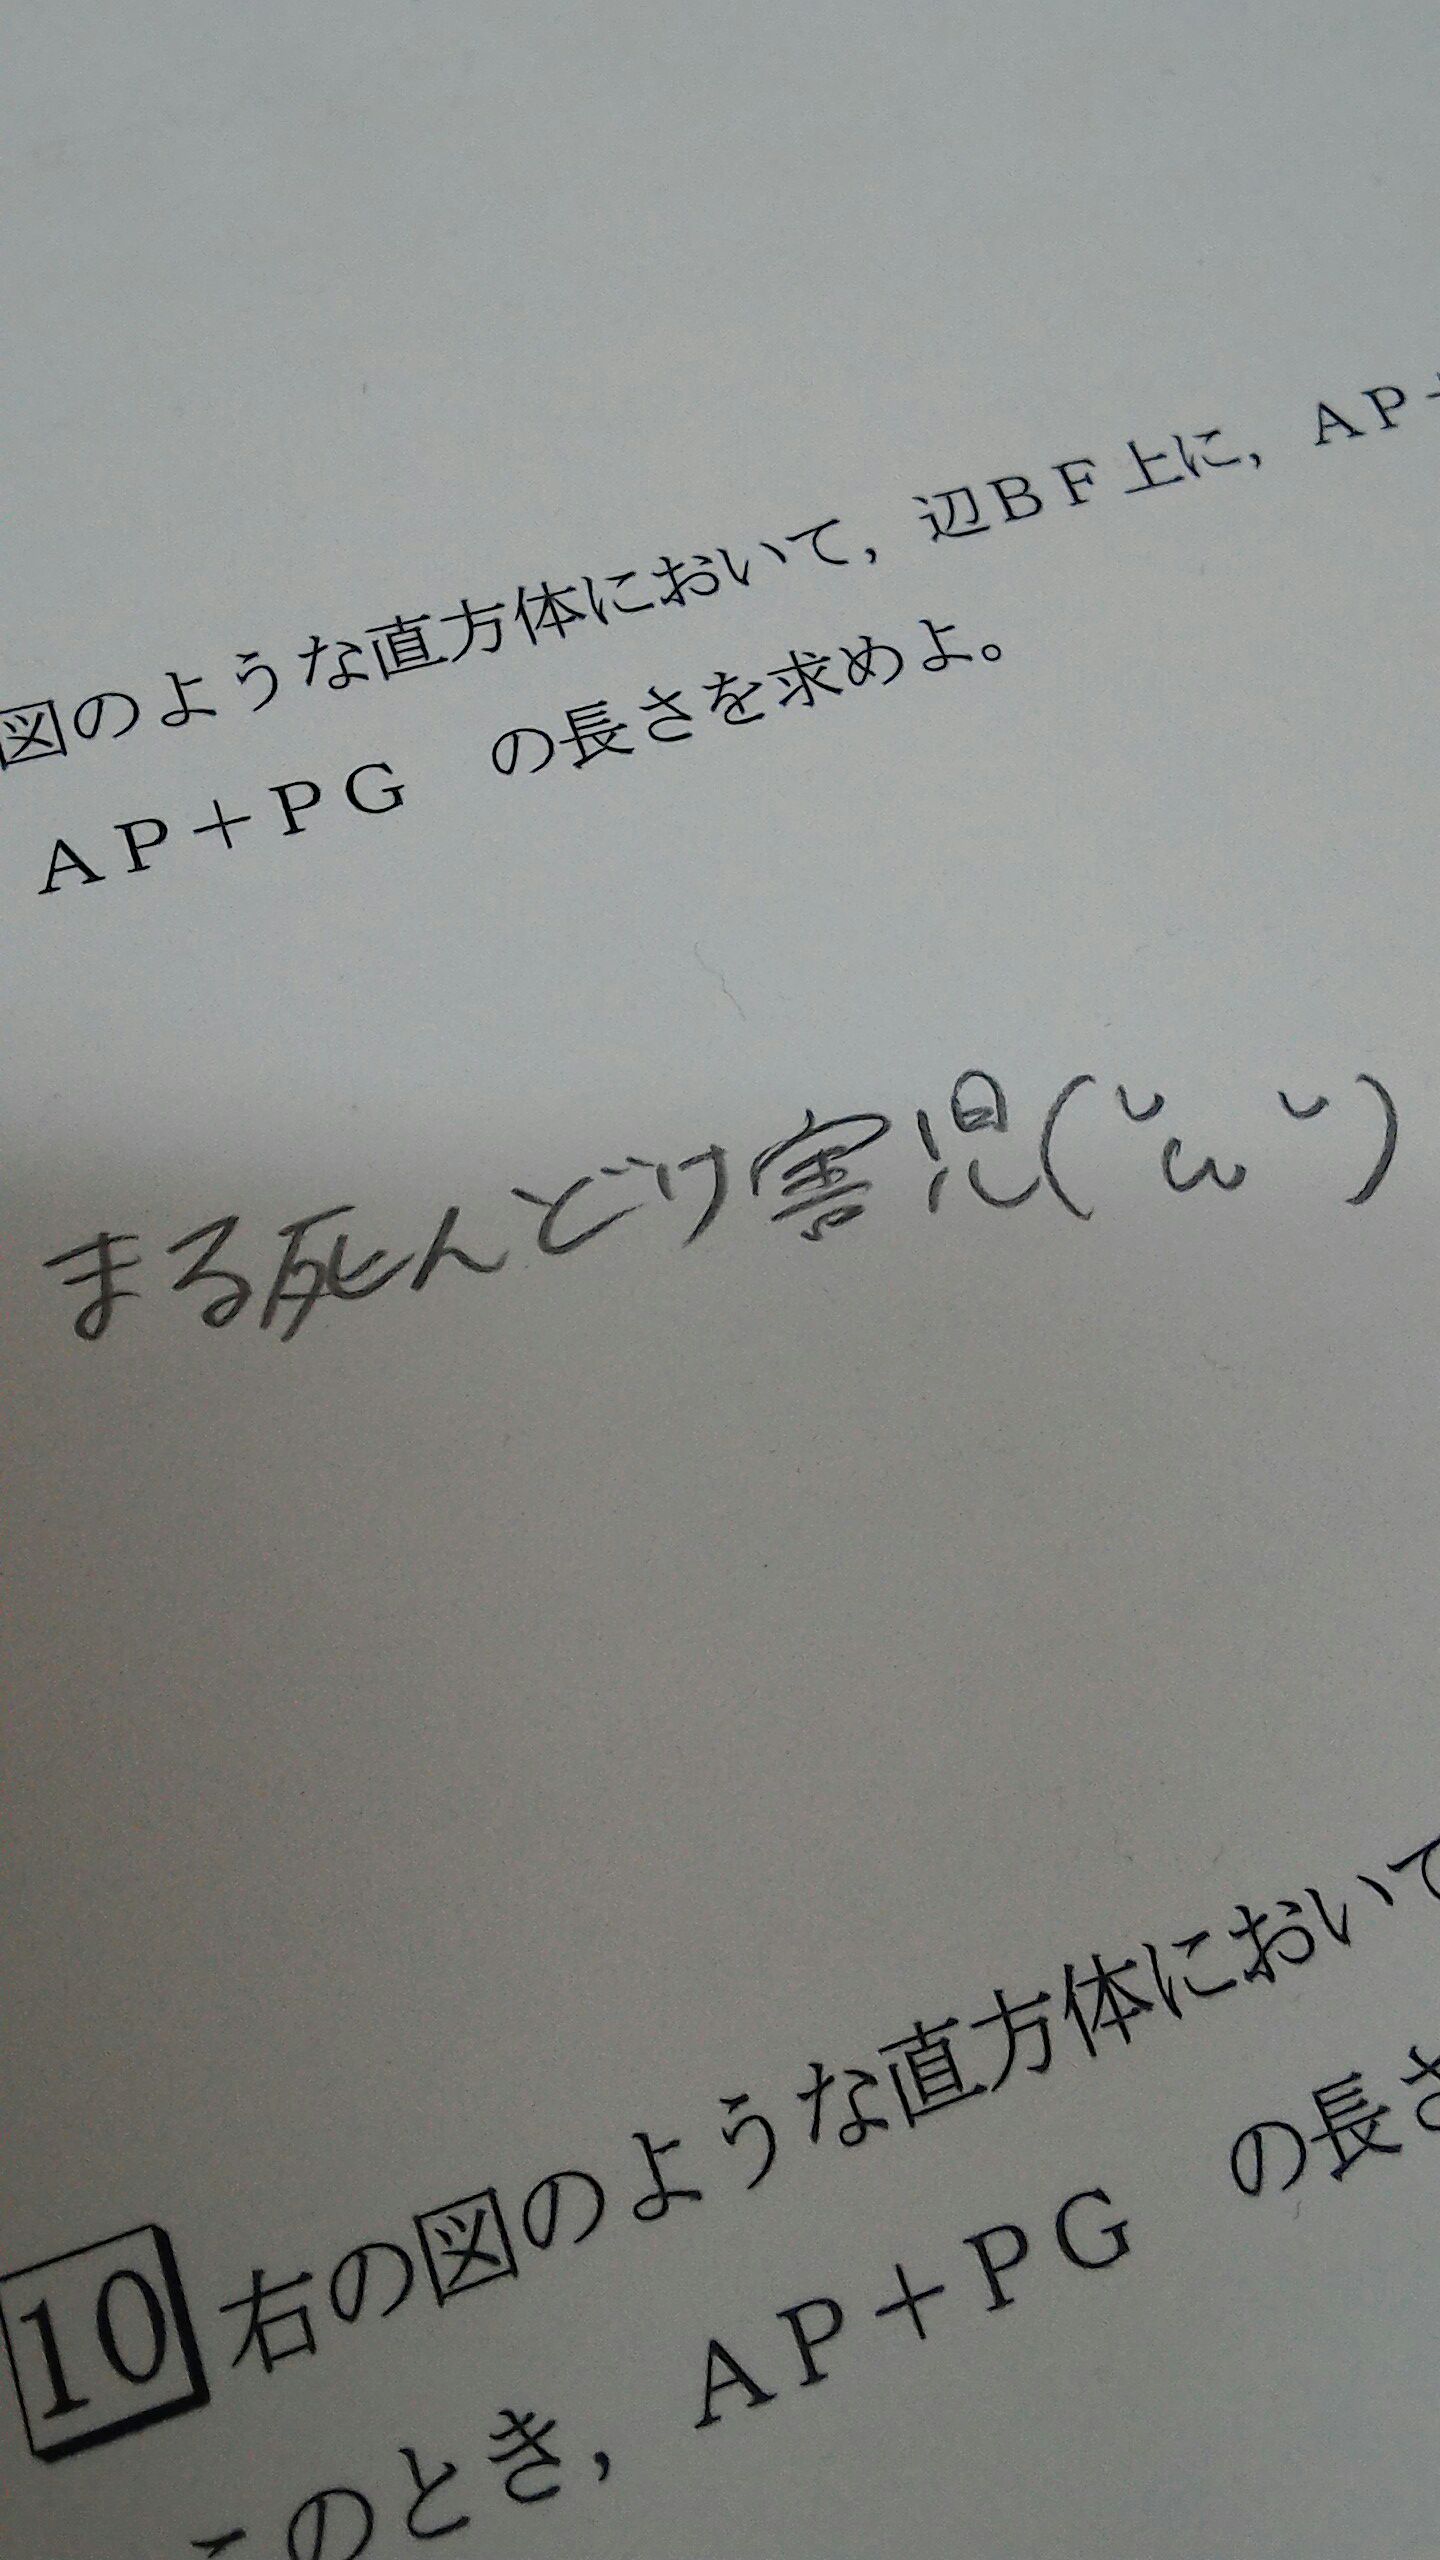 図のような直方体において，辺ＢＦ上に，ＡＰ＋
ＡＰ＋ＰＧ　の長さを求めよ。
まる死んどけ害児(˘ω˘)
10 右の図のような直方体において
このとき，ＡＰ＋ＰＧ　の長さ